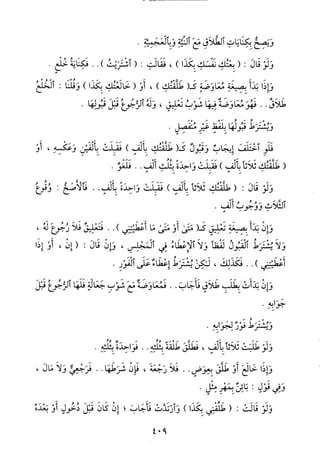 وَيَصِحُّ بِكِنَايَاتِ ٱلطَّلَاقِ مَعَ ٱلنِّيَّةِ وَبِٱلْعَجَمِيَّةِ .
وَلَوْ قَالَ : ( بِعْتُكِ نَفْسَكِ بِكَذَا ) ، فَقَالَتِ : ( ٱشْتَرَيْتُ ) .. فَكِنَايَةُ خُلْعٍ .
وَإِذَا بَدَأَ بِصِيغَةِ مُعَاوَضَةٍ كَـ( طَلَّقْتُكِ ) ، أَوْ ( خَالَعْتُكِ بِكَذَا ) وَقُلْنَا : ٱلْخُلْعُ
طَلَاقٌ .. فَهُوَ مُعَاوَضَةٌ فِيهَا شَوْبُ تَعْلِيقٍ ، وَلَهُ ٱلرُّجُوعُ قَبْلَ قَبُولِهَا .
وَيُشْتَرَطُ قَبُولُهَا بِلَفْظٍ غَيْرِ مُنْفَصِلٍ .
فَلَوِ ٱخْتَلَفَ إِيجَابٌ وَقَبُولٌ كَـ( طَلَّقْتُكِ بِأَلْفٍ ) فَقَبِلَتْ بِأَلْفَيْنِ وَعَكْسِهِ ، أَوْ
( طَلَّقْتُكِ ثَلَاثاً بِأَلْفٍ ) فَقَبِلَتْ وَاحِدَةً بِثُلُثِ أَلْفٍ .. فَلَغْوٌ .
وَلَوْ قَالَ : ( طَلَّقْتُكِ ثَلَاثاً بِأَلْفٍ ) فَقَبِلَتْ وَاحِدَةً بِأَلْفٍ .. فَٱلْأَصَحُّ : وُقُوعُ
ٱلثَّلَاثِ وَوُجُوبُ أَلْفٍ .
وَإِنْ بَدَأَ بِصِيغَةِ تَعْلِيقٍ كَـ( مَتَىٰ أَوْ مَتَىٰ مَا أَعْطَيْتِنِي ) .. فَتَعْلِيقٌ فَلَا رُجُوعَ لَهُ ،
وَلَا يُشْتَرَطُ ٱلْقَبُولُ لَفْظاً وَلَا ٱلْإِعْطَاءُ فِي ٱلْمَجْلِسِ ، وَإِنْ قَالَ : ( إِنْ ، أَوْ إِذَا
أَعْطَيْتِنِي ) .. فَكَذَلِكَ ، لَـٰكِنْ يُشْتَرَطُ إِعْطَاءٌ عَلَى ٱلْفَوْرِ .
وَإِنْ بَدَأَتْ بِطَلَبِ طَلَاقٍ فَأَجَابَ .. فَمُعَاوَضَةٌ مَعَ شَوْبِ جَعَالَةٍ فَلَهَا ٱلرُّجُوعُ قَبْلَ
جَوَابِهِ .
وَيُشْتَرَطُ فَوْرٌ لِجَوَابِهِ .
وَلَوْ طَلَبَتْ ثَلَاثاً بِأَلْفٍ ، فَطَلَّقَ طَلْقَةً بِثُلُثِهِ .. فَوَاحِدَةٌ بِثُلُثِهِ .
وَإِذَا خَالَعَ أَوْ طَلَّقَ بِعِوَضٍ .. فَلَا رَجْعَةَ ، فَإِنْ شَرَطَهَا .. فَرَجْعِيٌّ وَلَا مَالَ ،
وَفِي قَوْلٍ : بَائِنٌ بِمَهْرِ مِثْلٍ .
وَلَوْ قَالَتْ : ( طَلِّقْنِي بِكَذَا ) وَٱرْتَدَّتْ فَأَجَابَ ؛ إِنْ كَانَ قَبْلَ دُخُولٍ أَوْ بَعْدَهُ
٤٠٩